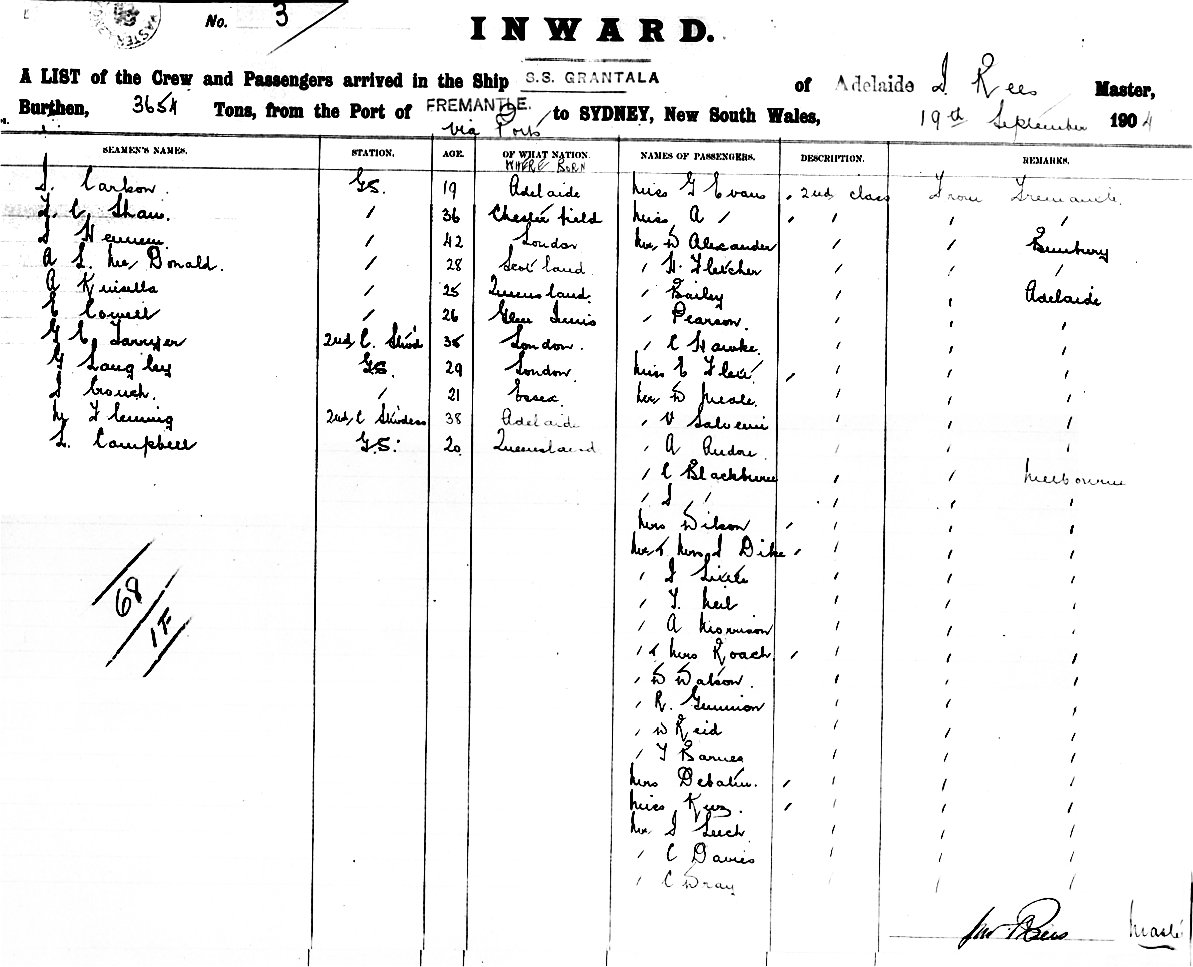 No. 3
INWARD.
A LIST of the Crew and Passengers arrived in the Ship S.S. GRANTALA of Adelaide J Rees Master,
Burthen, 3654 Tons, from the Port of FREMANTLE. via Ports to SYDNEY, New South Wales, 19th September 1904
SEAMEN'S NAMES. STATION. AGE. OF WHAT NATION. WHERE BORN NAMES OF PASSENGERS. DESCRIPTION. REMARKS.
GS. 19 Adelaide Miss G Evans " 2nd class From Fremantle
Shaw. " 36 Chesterfield Miss A " " " " "
" 42 London Mr W Alexander " " Bunbury
A L. Mc Donald. " 28 Scotland " H. Fletcher " " "
A " 25 Queensland. " Bailey " " Adelaide
E Cowell " 26 Glen Innis " Pearson. " " "
G E 2nd C. Stwd 35 London. " C Hawke. " " "
G Langley GS. 29 London. Miss E " " " "
J Couch. " 21 Essex. Mr W " " "
M Fleming 2nd C Stwdess 38 Adelaide " V Salvemi " " "
L. Campbell G.S. 20 Queensland " A " " "
" C Blackburne " " Melbourne
" J " " " "
Mrs Wilson " " " "
Mr & Mrs J Dike " " " "
" J Little " " "
" T. Neil " " "
" A Morrison " " "
" & Mrs Roach " " " "
" W Watson. " " "
" R. " " "
" W Reid " " "
" T Barnes " " "
Mrs " " " "
Miss " " " "
Mr J Leech " " "
" C Davies " " "
" C Wray " " "
68/1F
Jno Rees Master